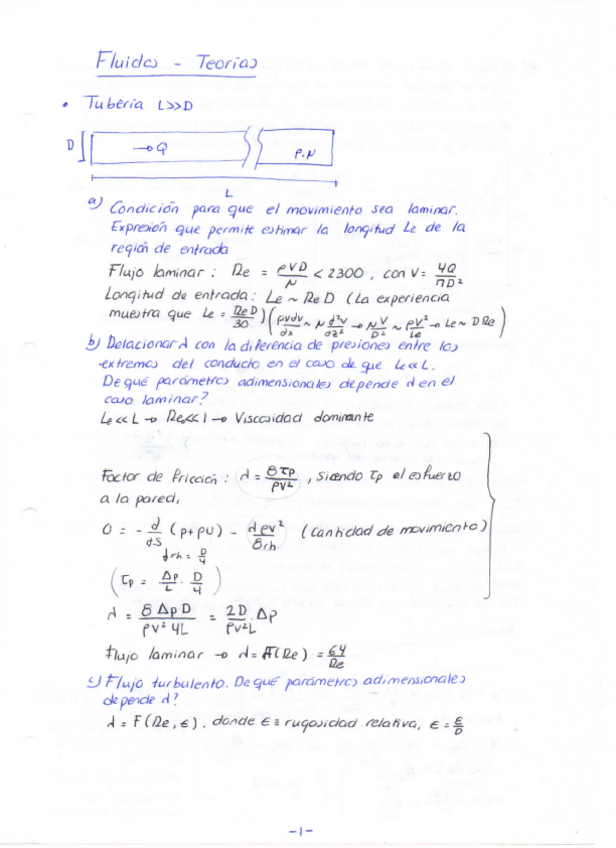 Fluidos - Teorías
• Tubería L>>D
D → Q ρ, μ
L
a) Condición para que el movimiento sea laminar.
Expresión que permite estimar la longitud Le de la
región de entrada
Flujo laminar : Re = ρVD/μ < 2300 , con V = 4Q/ΠD²
Longitud de entrada : Le ~ Re D ( La experiencia
muestra que Le = ReD/30 ) ( ρv dv/dx ~ μ d²v/dz² → μV/D² ~ ρV²/Le → Le ~ D Re )
b) Relacionar λ con la diferencia de presiones entre los
extremos del conducto en el caso de que Le << L.
De qué parámetros adimensionales depende λ en el
caso laminar?
Le << L → Re << 1 → Viscosidad dominante
Factor de fricción : λ = 8τp/ρV² , siendo τp el esfuerzo
a la pared,
0 = - d/ds (p+ρU) - λρv²/8rh (Cantidad de movimiento)
↓ rh = D/4
( τp = Δp/L · D/4 )
λ = 8 Δp D/ρV² 4L = 2D/ρV²L · Δp
Flujo laminar → λ = F(Re) = 64/Re
c) Flujo turbulento. De qué parámetros adimensionales
depende λ?
λ = F(Re, ϵ), donde ϵ ≡ rugosidad relativa, ϵ = ε/D
-1-